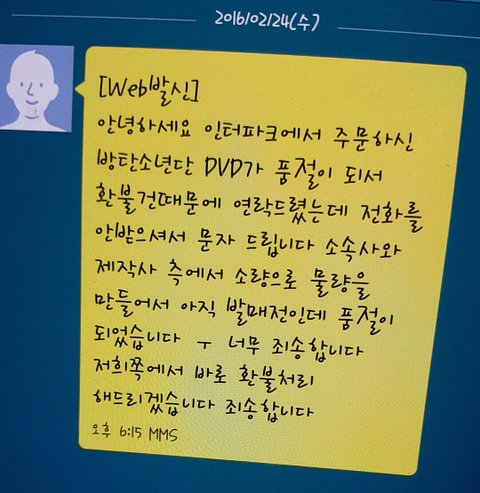 2016/02/24(수)
[Web발신]
안녕하세요 인터파크에서 주문하신
방탄소년단 DVD가 품절이 되서
환불건때문에 연락드렸는데 전화를
안받으셔서 문자 드립니다 소속사와
제작사 측에서 소량으로 물량을
만들어서 아직 발매전인데 품절이
되었습니다 ㅜ 너무 죄송합니다
저희쪽에서 바로 환불처리
해드리겠습니다 죄송합니다
오후 6:15 MMS